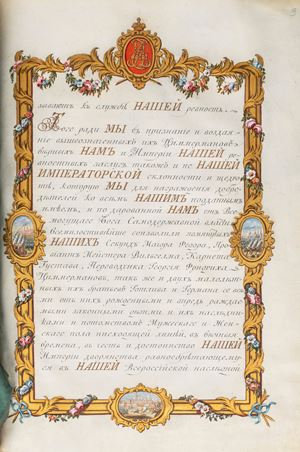 3
зывалъ къ службѣ НАШЕЙ ревность.
Того ради МЫ въ признаніе и воздая-
ніе вышеозначенныхъ ихъ Циммермановъ
вѣрныхъ НАМЪ и Имперіи НАШЕЙ ре-
вностныхъ заслугъ такожъ и по НАШЕЙ
ИМПЕРАТОРСКОЙ склонности и щедро-
тѣ, которую МЫ для награжденія добро-
дѣтелей ко всѣмъ НАШИМЪ подданнымъ
имѣемъ, и по дарованной НАМЪ отъ Все-
могущаго Бога самодержавной власти
Всемилостивѣйше соизволили помянутыхъ
НАШИХЪ Секундъ Маіора Федора, Про-
віантъ Мейстера Вильгелма, Карнета
Густава, Переводчика Георгія Фридриха
Циммермановъ, такъ же и двухъ малолѣт-
ныхъ ихъ братьевъ Готлиба и Германа со въ
отъ нихъ рожденными и впредь раждае-
мыми законными дѣтьми и ихъ наслѣдни-
ками и потомствомъ Мужескаго и Жен-
скаго пола нисходящей линѣи, въ вѣчныя
времена, въ честь и достоинство НАШЕЙ
Имперіи дворянства равнообрѣтающему-
ся въ НАШЕЙ Всероссійской наслѣдной